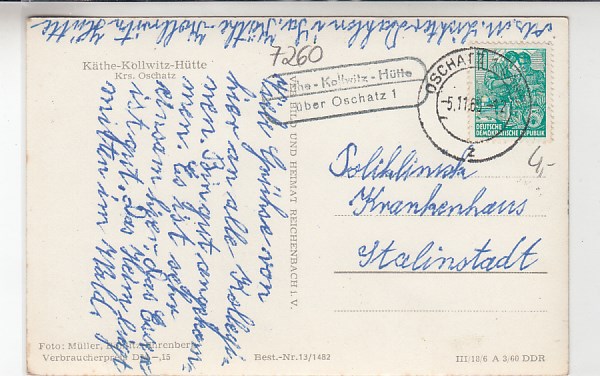 Käthe-Kollwitz-Hütte
Krs. Oschatz
7260
Käthe-Kollwitz-Hütte
über Oschatz 1
OSCHATZ
-5.11.6
z
DEUTSCHE
DEMOKRATISCHE REPUBLIK
4,-
Viele Grüße von
hier an alle Kollegin-
nen. Bin gut angekom-
men. Es ist sehr
einsam hier, das Essen
ist gut, das Heim liegt
mitten im Wald.
Poliklinik
Krankenhaus
Stalinstadt
BILD UND HEIMAT REICHENBACH I. V.
Foto: Müller,
Verbraucherpreis DM -,15
Best.-Nr. 13/1482
III/18/6 A 3/60 DDR